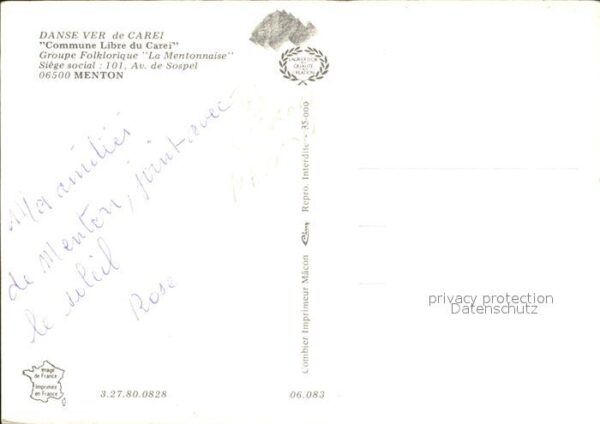 DANSE VER de CAREI
"Commune Libre du Carei"
Groupe Folklorique "La Mentonnaise"
Siège social : 101, Av. de Sospel
06500 MENTON
LABEL D'OR
QUALITÉ
CRÉATION
Mes amitiés
de Menton, joint avec
le soleil
Rose
Combier Imprimeur Mâcon Cim Repro. Interdite - 35-000
privacy protection
Datenschutz
Image
de France
Imprimée
en France
3.27.80.0828
06.083